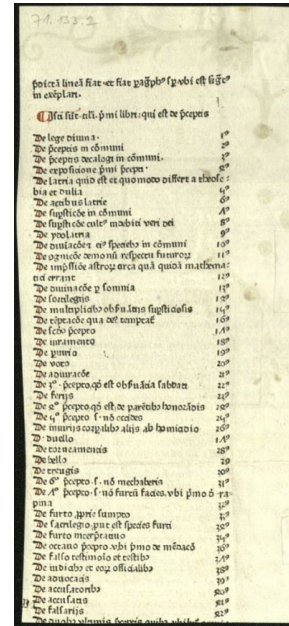 71.133.2
p̄dictā linea fiat et fiat ꝑagͣph⁹ sꝑ vbi est sigͣtͫ
in exēplari.
Isti sūt tituli p̄mi libri qui est de p̄ceptis
De lege diuina. 1⁹
De p̄ceptis in cōmuni 2⁹
De p̄ceptis decalogi in cōmuni. 3⁹
De expositione pmi p̄cepti 4⁹
De latria quid est et quomodo differt a theose
bia et dulia 5⁹
De actibus latrie 6⁹
De supsticōe in cōmuni 7⁹
De supsticōe cult⁹ modi veri dei 8⁹
De ydolatria 9⁹
De diuinacōe et ei⁹ speciebꝫ in cōmuni 10⁹
De demonū respectu futuroꝝ 11⁹
De astroꝝ circa quā quidā mathema
tici errant 12⁹
De diuinacōe ꝑ somnia 13⁹
De sortilegiis 14⁹
De multiplicibꝫ obẜuātiis supsticiosis 15⁹
De tēptacōe qua de⁹ temptat᷑ 16⁹
De scd̄o p̄cepto 17⁹
De iuramento 18⁹
De piurio 19⁹
De voto 20⁹
De adiuracōe 21⁹
De 3⁰ p̄cepto.qd̄ est obẜuātia sabbati 22⁹
De feriis 23⁹
De 4⁰ p̄cepto.qd̄ est de parētibꝫ honorādis 24⁹
De 5⁰ p̄cepto.s.nō occides 25⁹
De iniuriis corꝑalibꝫ aliis ab homicidio 26⁹
D duello 27⁹
De torneamentis 28⁹
De bello 29
De treugis 30⁹
De 6⁰ p̄cepto.s.nō mechaberis 31⁹
De 7⁰ p̄cepto.s.nō furtū facies.vbi pͥmo d̄ ra-
pina 32⁹
De furto ꝓprie sumpto 33⁹
De sacrilegio.put est species furti 34⁹
De furto interp̄tatiuo 35⁹
De octauo p̄cepto vbi pͥmo de mēdacō 36⁹
De falso testimonio et testibꝫ 37⁹
De iudicibꝫ et eoꝝ officialibꝫ 38⁹
De aduocatis 39⁹
De accusatoribꝫ 40⁹
De accusatis 41⁹
De falsariis 42⁹
De duobꝫ vltimis p̄ceptis